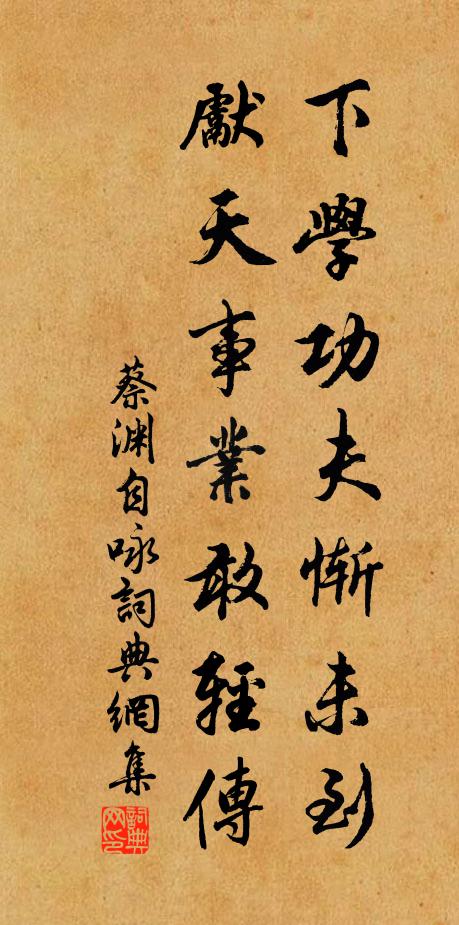 下學功夫慚未到
獻天事業敢輕傳
蔡淵自咏詞典網集
詞典网印